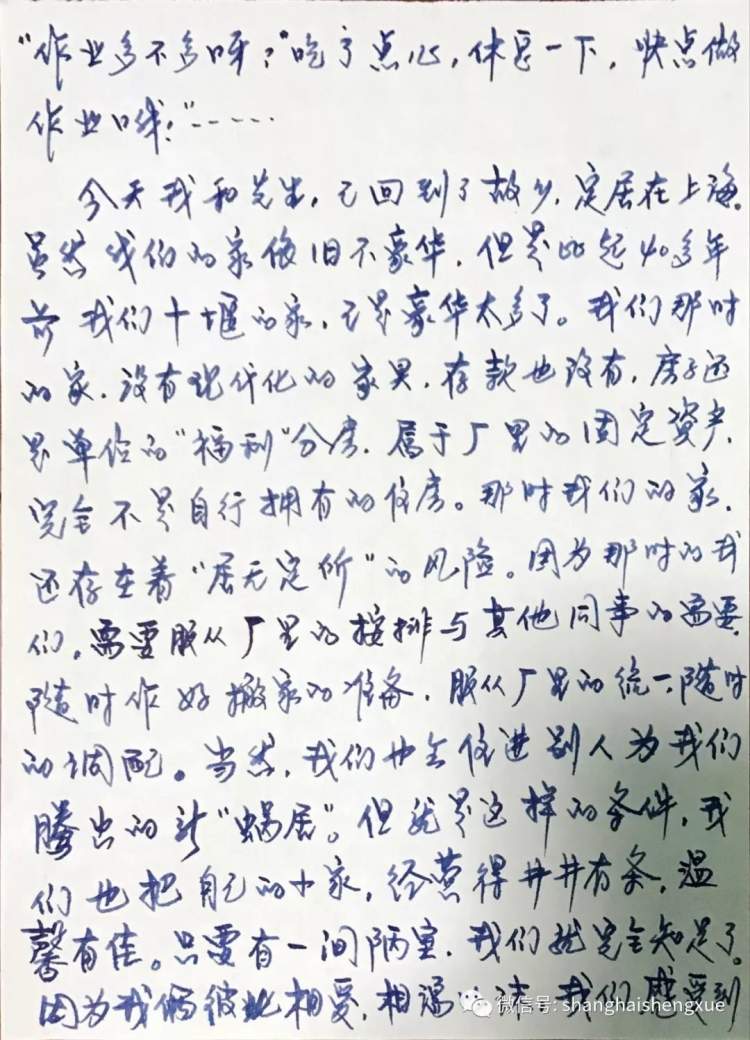 “作业多不多呀?”吃了点心,休息一下,快点做
作业哦!”-----
今天我和先生,已回到了故乡,定居在上海。
虽然我们的家依旧不豪华,但是比起40多年
前我们十堰的家,已是豪华太多了。我们那时
的家,没有现代化的家具,存款也没有,房子还
是单位的“福利”分房,属于厂里的固定资产,
完全不是自行拥有的住房。那时我们的家,
还存在着“居无定所”的风险。因为那时的我
们,需要服从厂里的按排与其他同事的需要,
随时作好搬家的准备,服从厂里的统一、随时
的调配。当然,我们也会住进别人为我们
腾出的新“蜗居”。但就是这样的条件,我
们也把自己的小家,经营得井井有条,温
馨有佳。只要有一间陋室,我们就完全知足了。
因为我俩彼此相爱,相濡 沫,我们感受到
微信号: shanghaishengxue